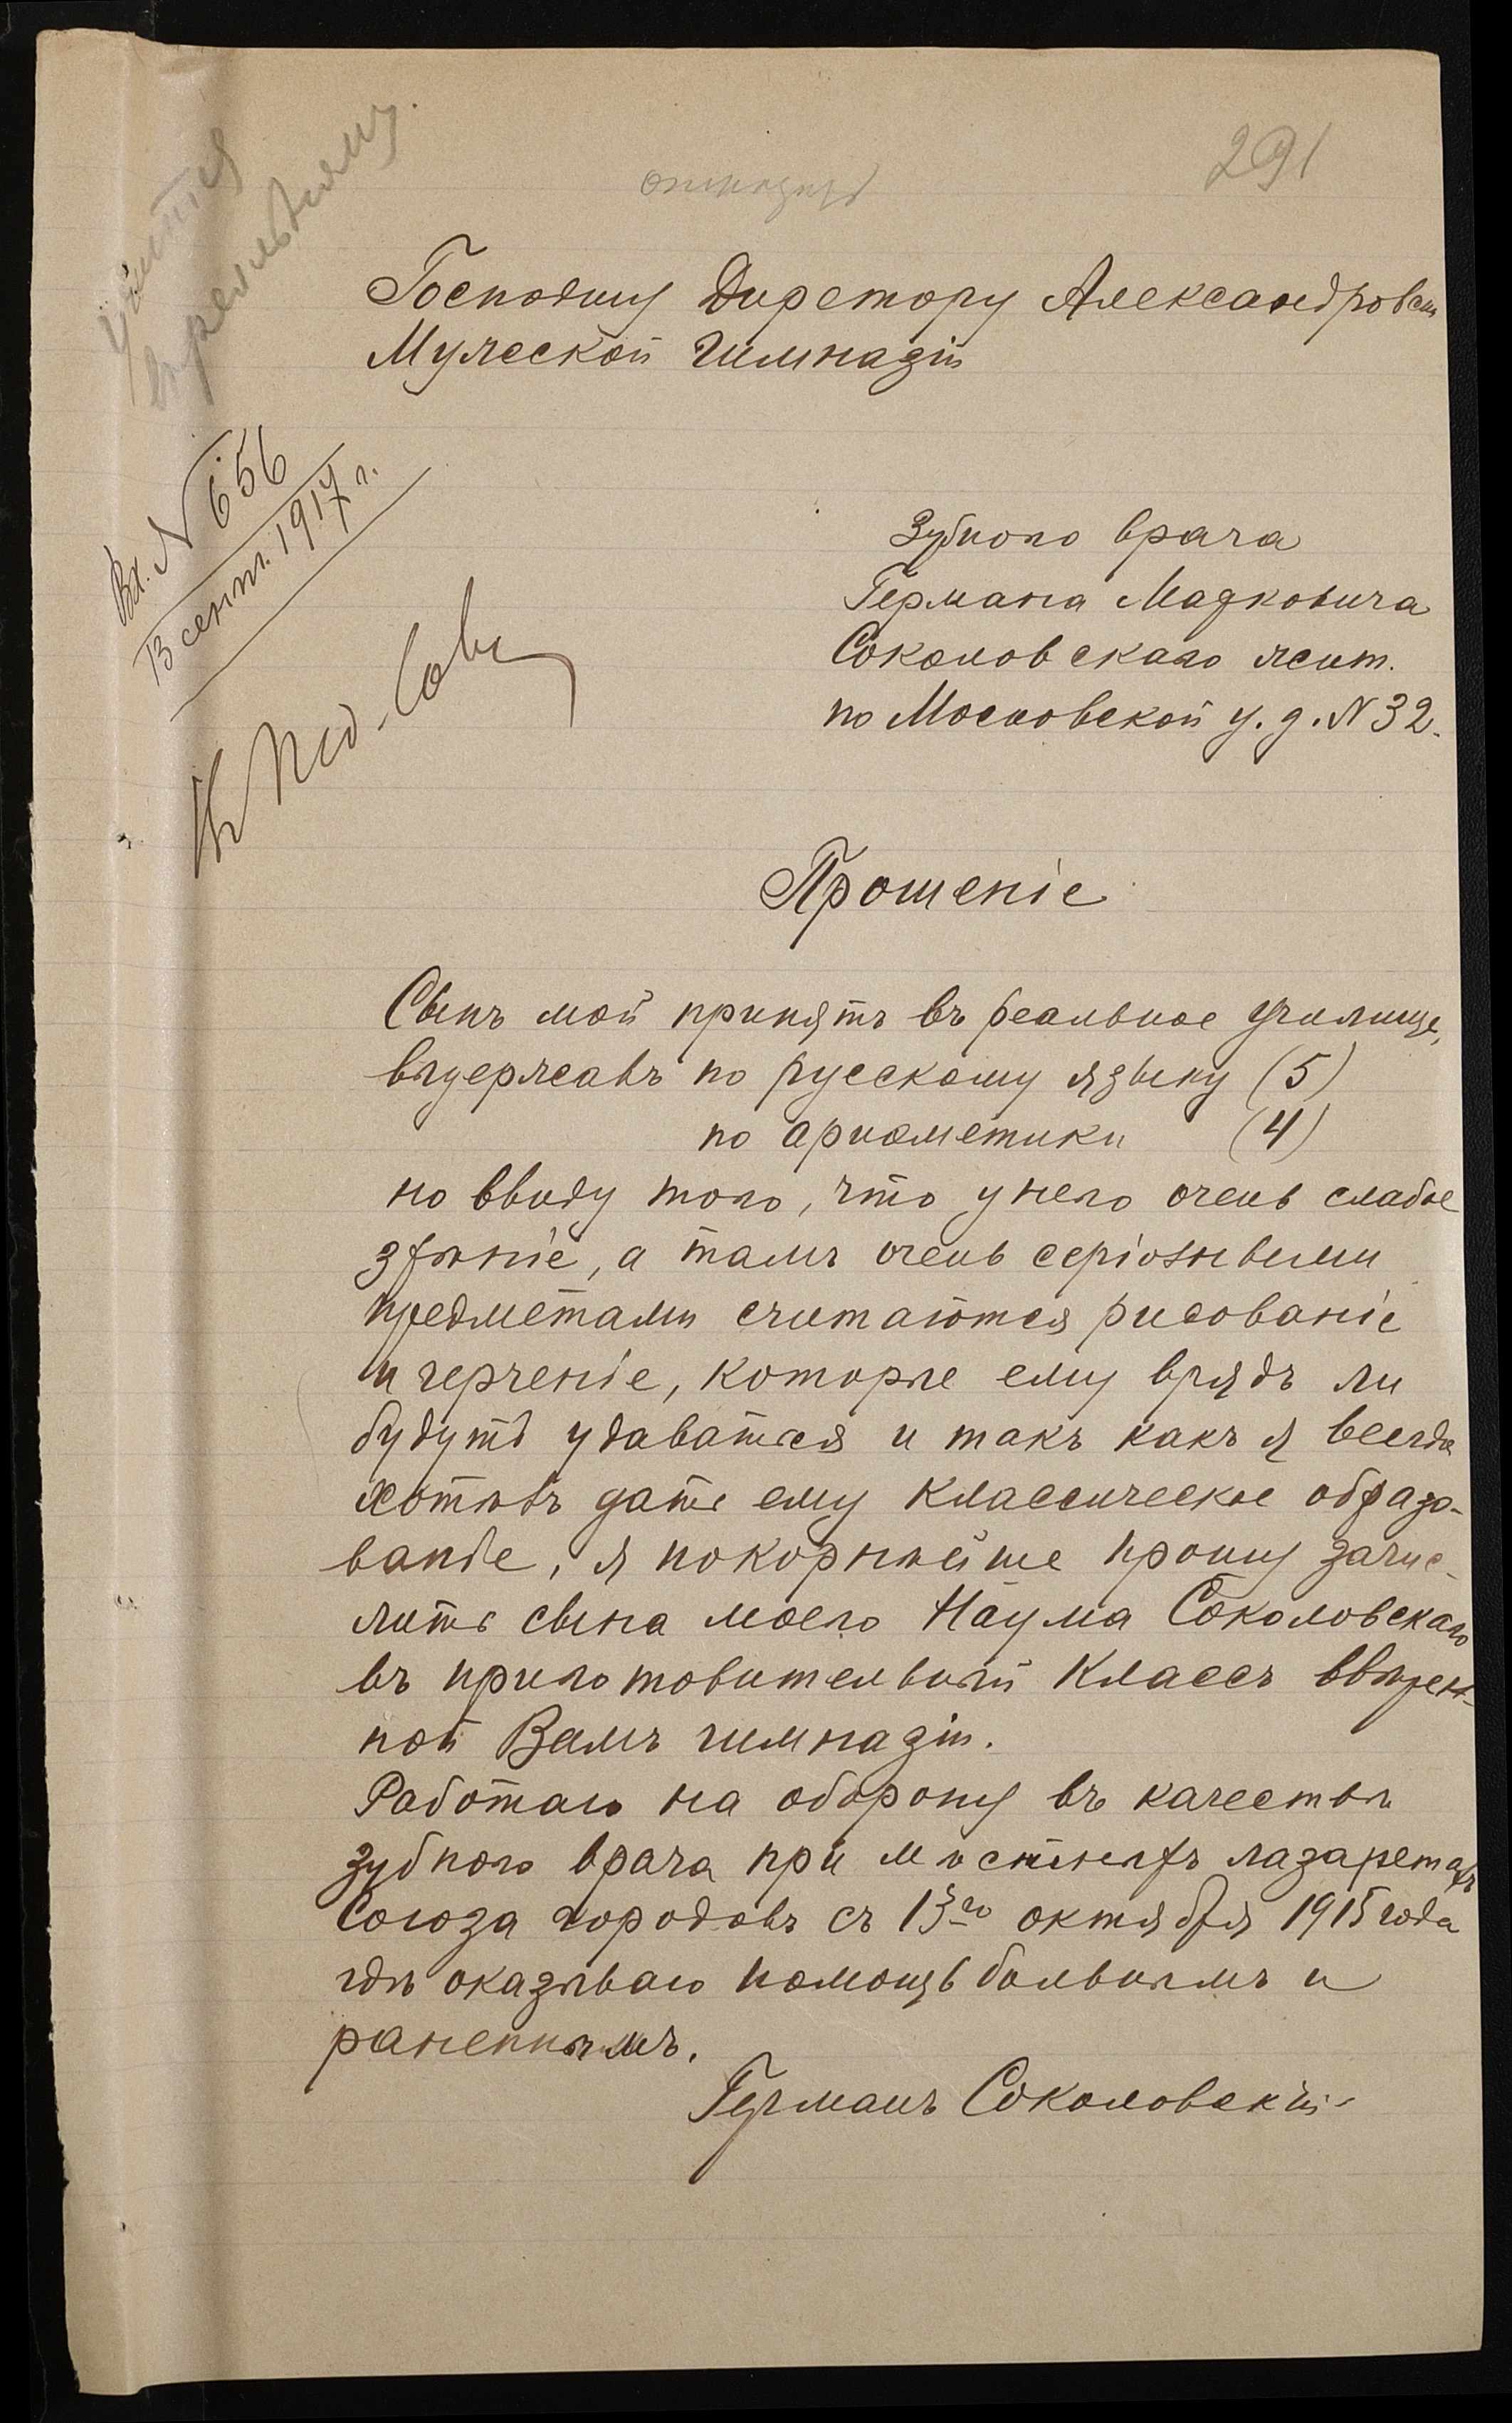 291
отказать
Учится
въ реальному.
Вх. № 656
13 сент. 1917 г.
Въ Пед. Сов.
Господину Директору Александровск
Мужской гимназіи
Зубного врача
Германа Мадковича
Соколовскаго жит.
по Московской у. д. N 32.
Прошеніе
Сынъ мой принятъ въ реальное училище,
выдержавъ по русскому языку (5)
по ариѳметики (4)
но ввиду того, что у него очень слабое
зрѣніе, а тамъ очень серіозными
предметами считаются рисованіе
и черченіе, которые ему врядъ ли
будутъ удаваться и такъ какъ я всегда
хотѣлъ дать ему классическое образо-
ваніе, я покорнѣйше прошу зачис-
лить сына моего Наума Соколовскаго
въ приготовительный классъ ввѣрен-
ной Вамъ гимназіи.
Работаю на оборону въ качествѣ
зубного врача при мѣстныхъ лазаретахъ
Союза городовъ съ 13го октября 1915 года
гдѣ оказываю помощь больнымъ и
раненнымъ.
Германъ Соколовскій